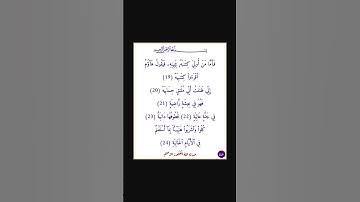 بِسْمِ اللَّهِ الرَّحْمَٰنِ الرَّحِيمِ
فَأَمَّا مَنْ أُوتِيَ كِتَابَهُ بِيَمِينِهِ فَيَقُولُ هَاؤُمُ
اقْرَءُوا كِتَابِيَهْ (19)
إِنِّي ظَنَنتُ أَنِّي مُلَاقٍ حِسَابِيَهْ (20)
فَهُوَ فِي عِيشَةٍ رَّاضِيَةٍ (21)
فِي جَنَّةٍ عَالِيَةٍ (22) قُطُوفُهَا دَانِيَةٌ (23)
كُلُوا وَاشْرَبُوا هَنِيئًا بِمَا أَسْلَفْتُمْ
فِي الْأَيَّامِ الْخَالِيَةِ (24)